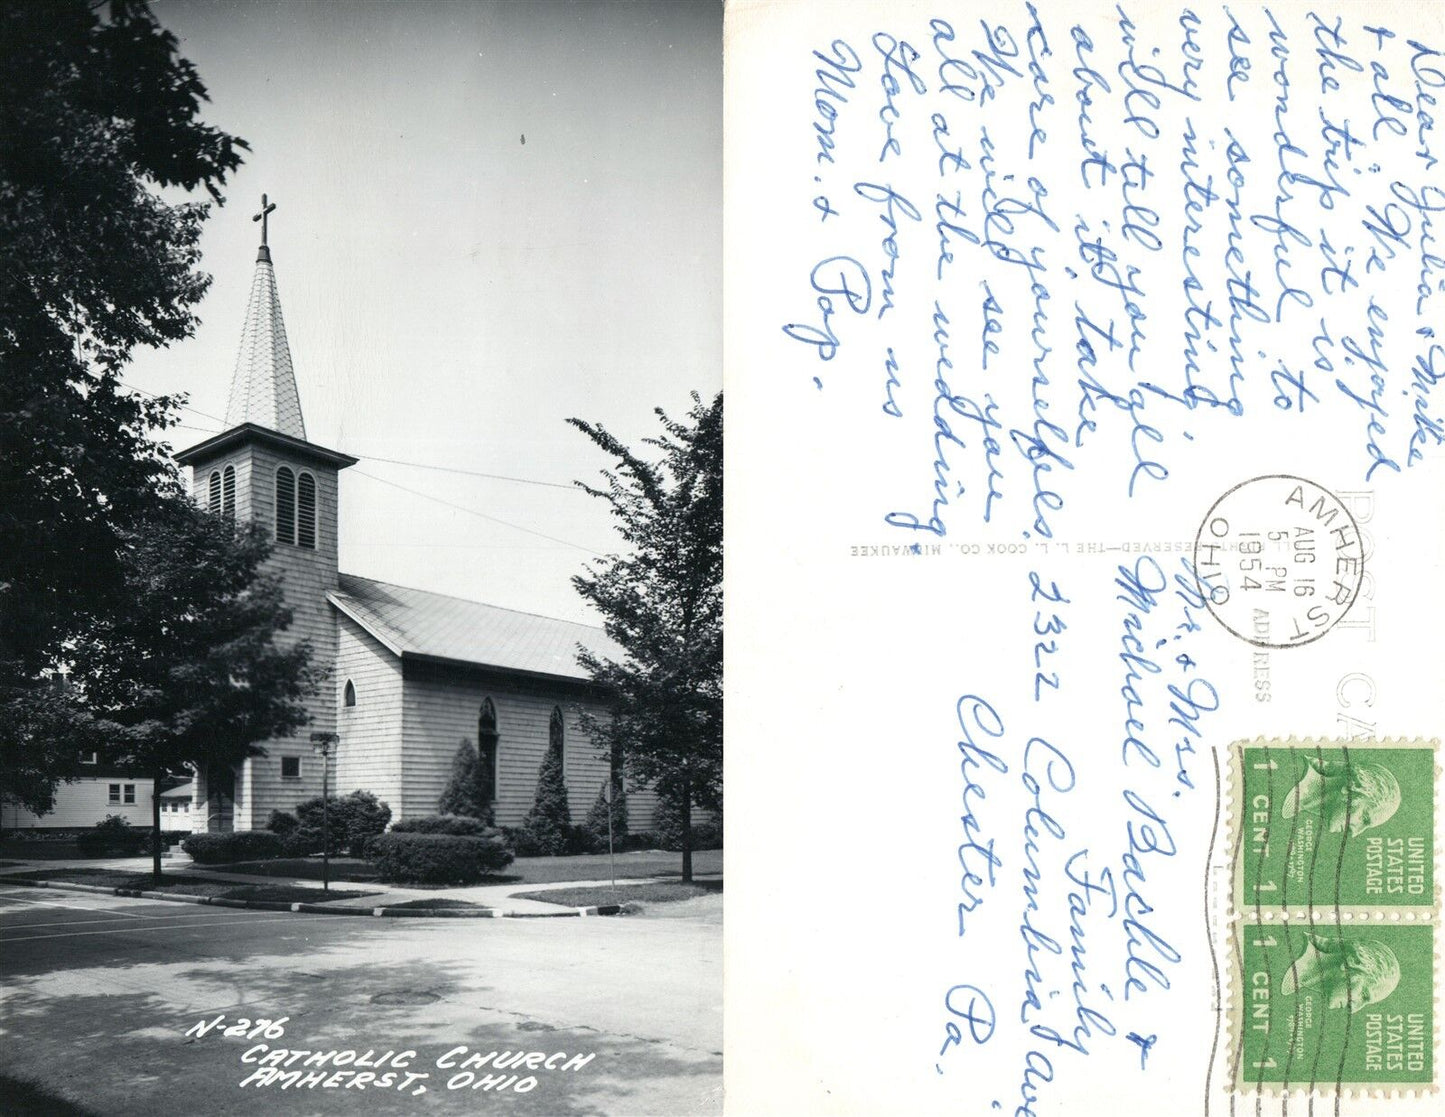 N-276
CATHOLIC CHURCH
AMHERST, OHIO
Dear Julia & Mike
& all. We enjoyed
the trip it is
wonderful to
see something
very interesting
will tell you all
about it, take
care of yourselfs.
We will see you
all at the wedding,
Love from us
Mom. & Pop.
POST CA
ADDRESS
RESERVED—THE L. L. COOK CO., MILWAUKEE
AMHERST
AUG 16
5 PM
1954
OHIO
Mr. & Mrs.
Michael Bachle &
Family
2322 Columbia Ave
Chester Pa.
UNITED
STATES
POSTAGE
GEORGE
WASHINGTON
1 CENT 1
UNITED
STATES
POSTAGE
GEORGE
WASHINGTON
1 CENT 1